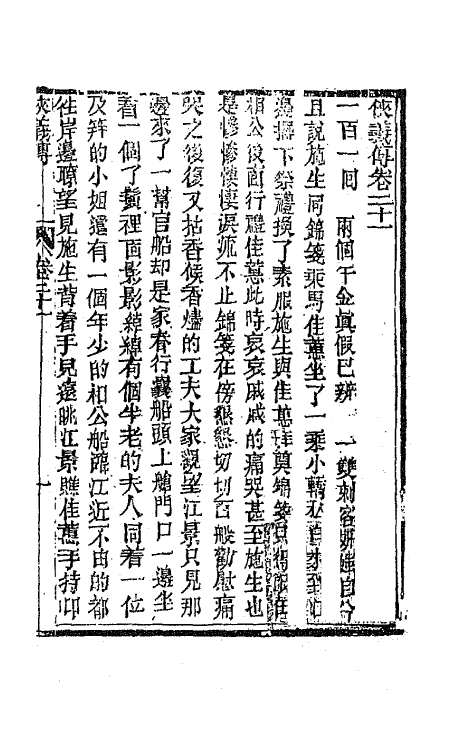 俠義傳卷二十一
一百一回　兩個千金眞假已辨　一雙刺客妍媸自分
且說施生同錦箋乘馬佳蕙坐了一乘小轎私自來到
邊擺下祭禮換了素服施生與佳蕙拜奠錦箋
相公後面行禮佳蕙此時哀哀戚戚的痛哭甚至施生也
是慘慘悽悽淚流不止錦箋在傍懇懇切切百般勸慰痛
哭之後復又拈香候香燼的工夫大家觀望江景只見那
邊來了一幫官船却是家眷行囊船頭上艙門口一邊坐
着一個了鬟裡面影影綽綽有個半老的夫人同着一位
及笄的小姐還有一個年少的相公船臨江近不由的都
往岸邊瞭望見施生背着手兒遠眺江景瞧佳蕙手持叩
俠義傳　卷二十一　一